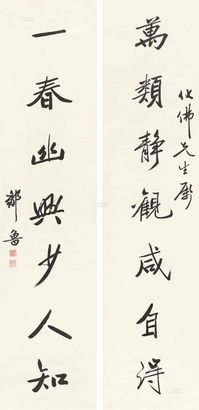 化佛先生屬
萬類靜觀咸自得
一春幽興少人知
鄒魯